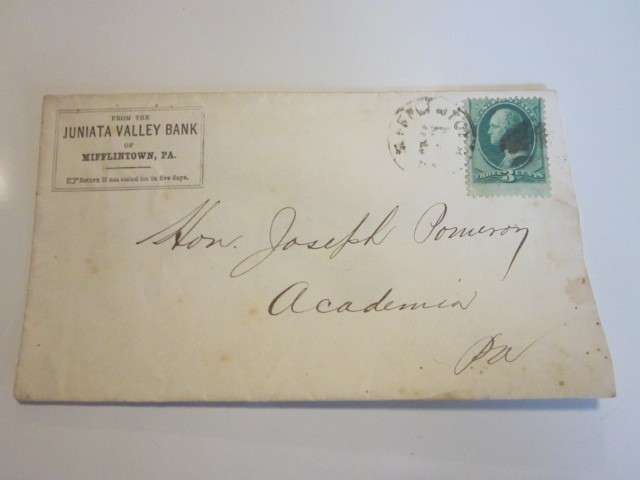 FROM THE
JUNIATA VALLEY BANK
OF
MIFFLINTOWN, PA.
Return if not called for in five days.
THREE 3 CENTS
Hon. Joseph Pomeroy
Academia
Pa